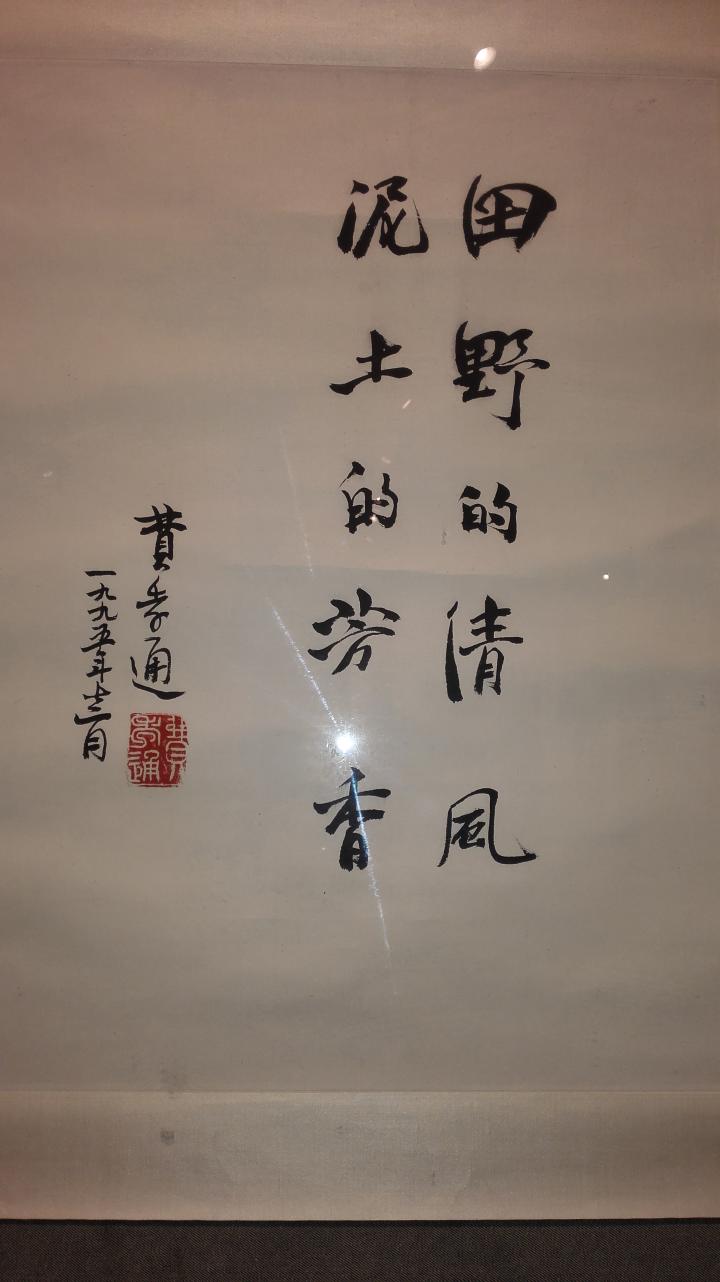 田野的清風
泥土的芳香
費孝通
一九九五年十二月
費孝通